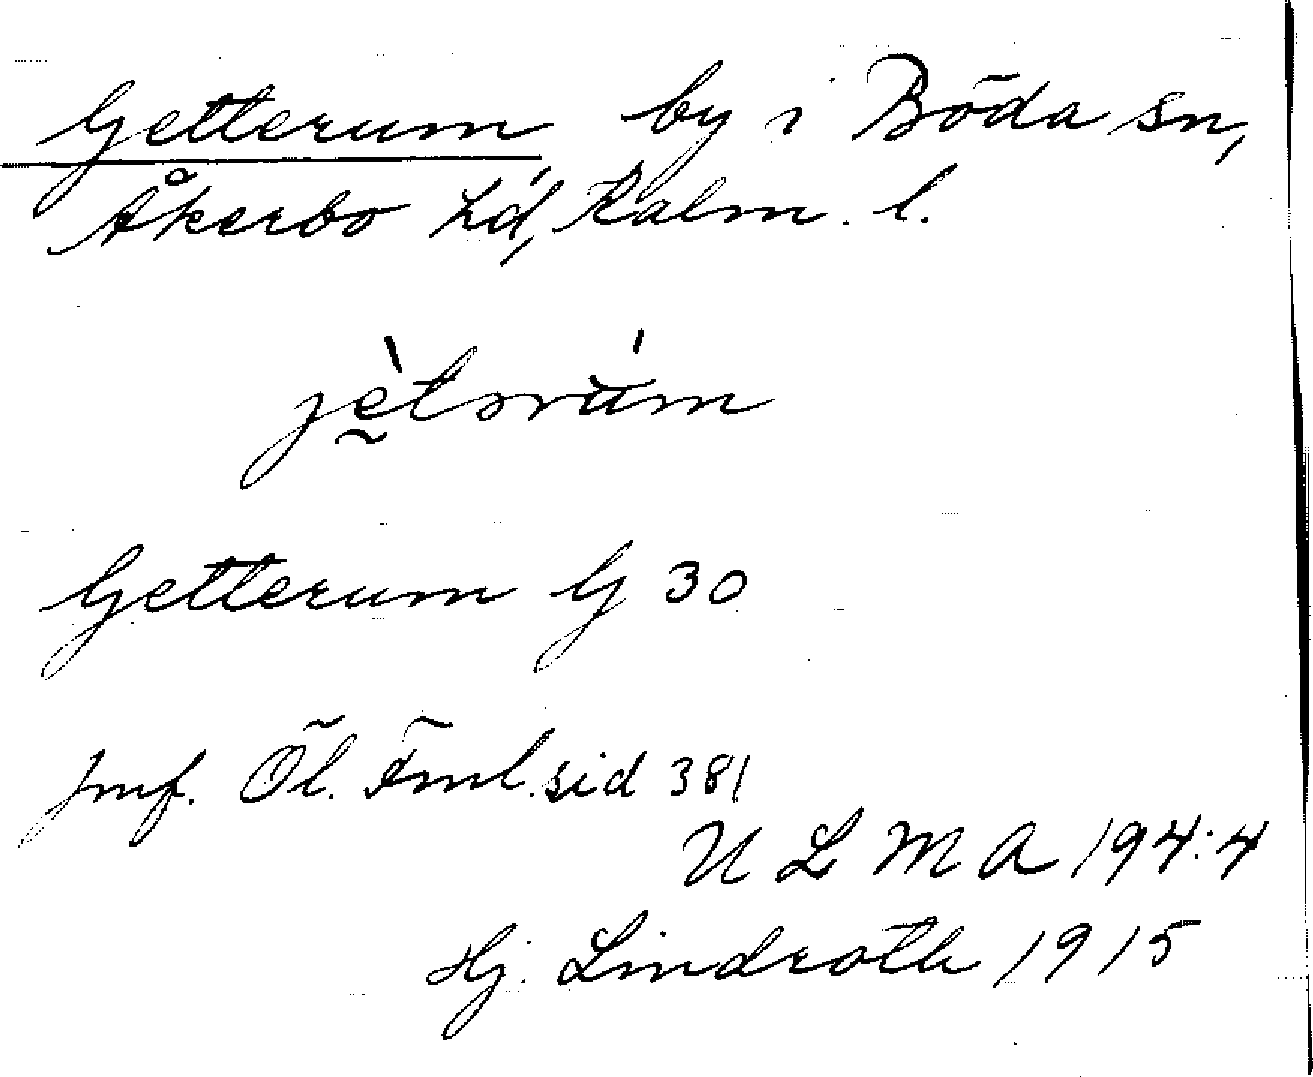 Getterum by i Böda sn,
Åkerbo hd, Kalm. l.
jètərúm
Getterum G 30
Jmf. Öl. Fml. sid 381
ULMA 194:4
Hj. Lindroth 1915